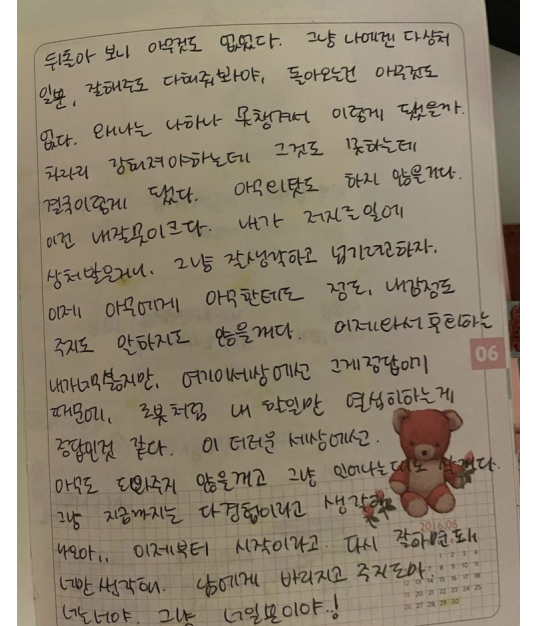 뒤돌아 보니 아무것도 없었다. 그냥 나에겐 다상처
일뿐, 잘해주도 다해줘봐야, 돌아오는건 아무것도
없다. 왜나는 나하나 못챙겨서 이렇게 됐을까.
차라리 강해져야하는데 그것도 못하는데
결국이렇게 됐다. 아무리탓도 하지 않을거다.
이건 내잘못이크다. 내가 저지른일에
상처받은거니. 그냥 잘생각하고 넘기려고하자.
이제 아무에게 아무한테도 정도, 내감정도
주지도 말하지도 않을꺼다. 이제와서후회하는
내가너무싫지만, 여기이세상에선 그게정답이기
때문에, 로봇처럼 내 할일만 열심히하는게
정답인것 같다. 이 더러운 세상에선.
아무도 도와주지 않을꺼고 그냥
그냥 지금까지는 다경험이라고 생각
나요아,, 이제부터 시작이라고. 다시 잘하면돼
너만생각해. 남에게 바라지고 주지도마
너는너야. 그냥 너일뿐이야.!
06
2016.06